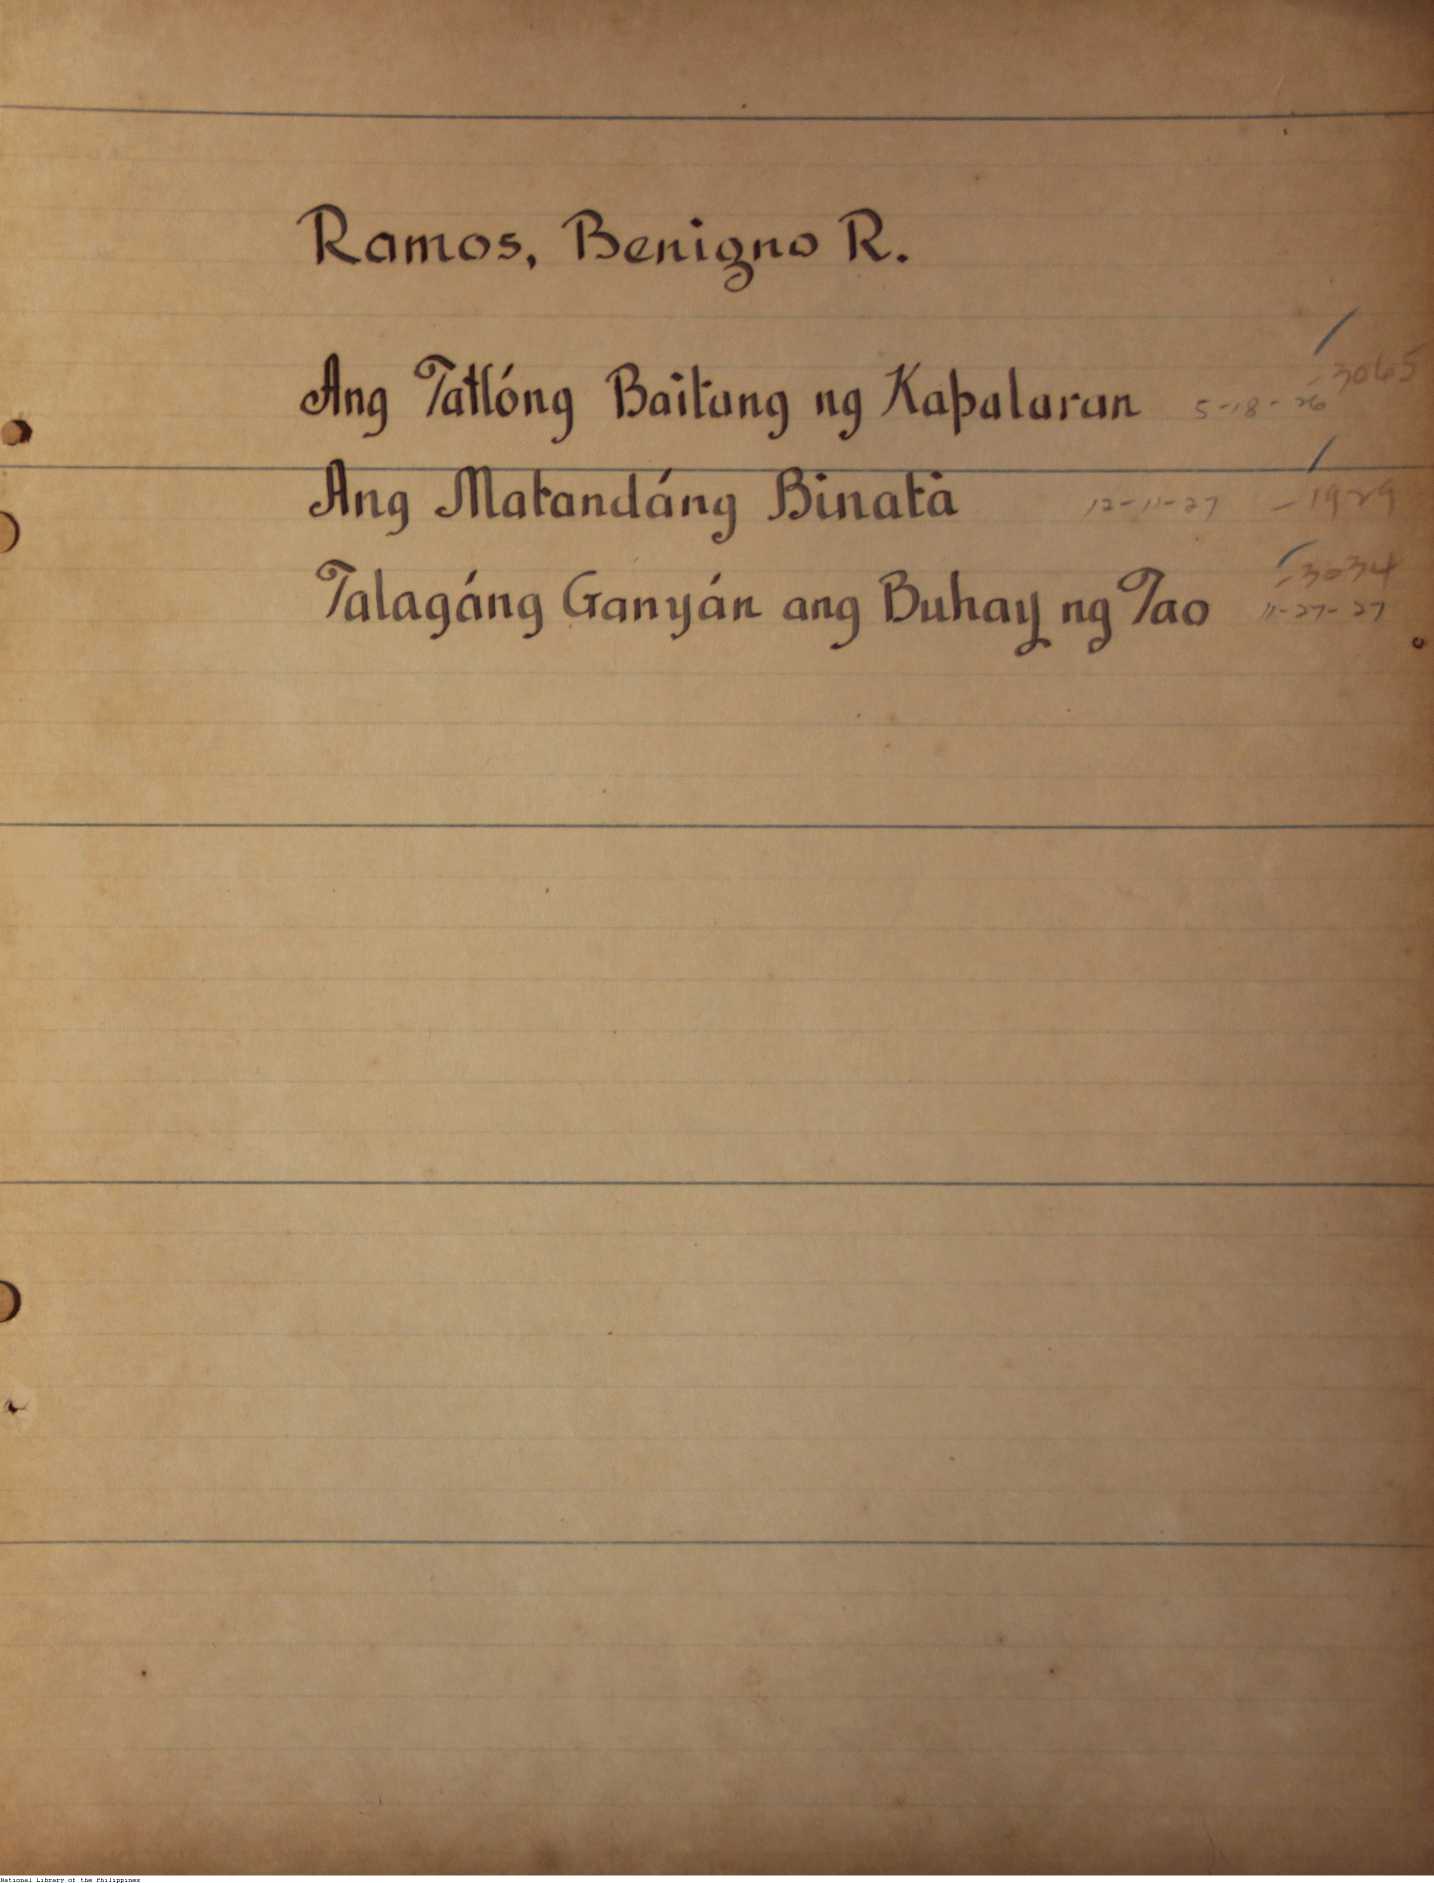 Ramos, Benigno R.
Ang Tatlóng Baitang ng Kapalaran 5-18-26 -3065
Ang Matandáng Binatà 12-11-27 -1929
Talagáng Ganyán ang Buhay ng Tao -3034
11-27-27
National Library of the Philippines